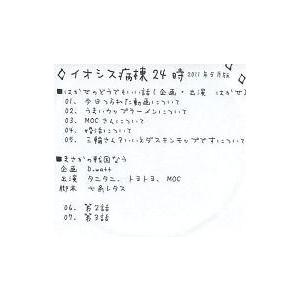 ◇イオシス病棟24時 2011年5月版◇
■はかせのどうでもいい話(企画・出演 はかせ)
01. 今日つられた動画について
02. うまいカップラーメンについて
03. MOCさんについて
04. 婚活について
05. 三輪さんそういえばダスキンモップですについて
■まさかの戦国なう
企画 D.watt
出演 タニタニ、トヨトヨ、MOC
脚本 七条レタス
06. 第2話
07. 第3話